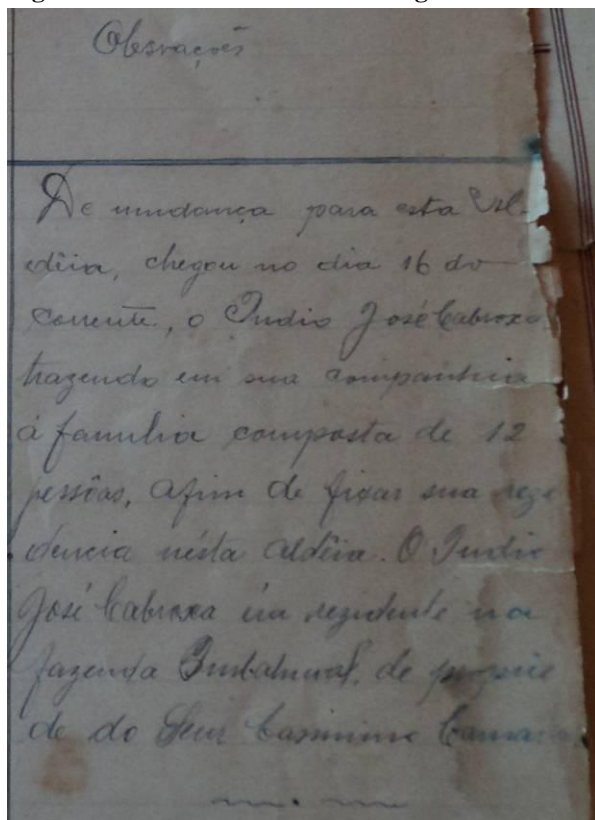 Obsrvações
De mudança para esta Al-
dêia, chegou no dia 16 do
corrente, o Indio José Cabroxa
trazendo em sua companhia
á familia composta de 12
pessôas, afim de fixar sua rezi
dencia nésta aldêia. O Indio
José Cabroxa éra rezidente na
fazenda de
de do Snr Cassimiro